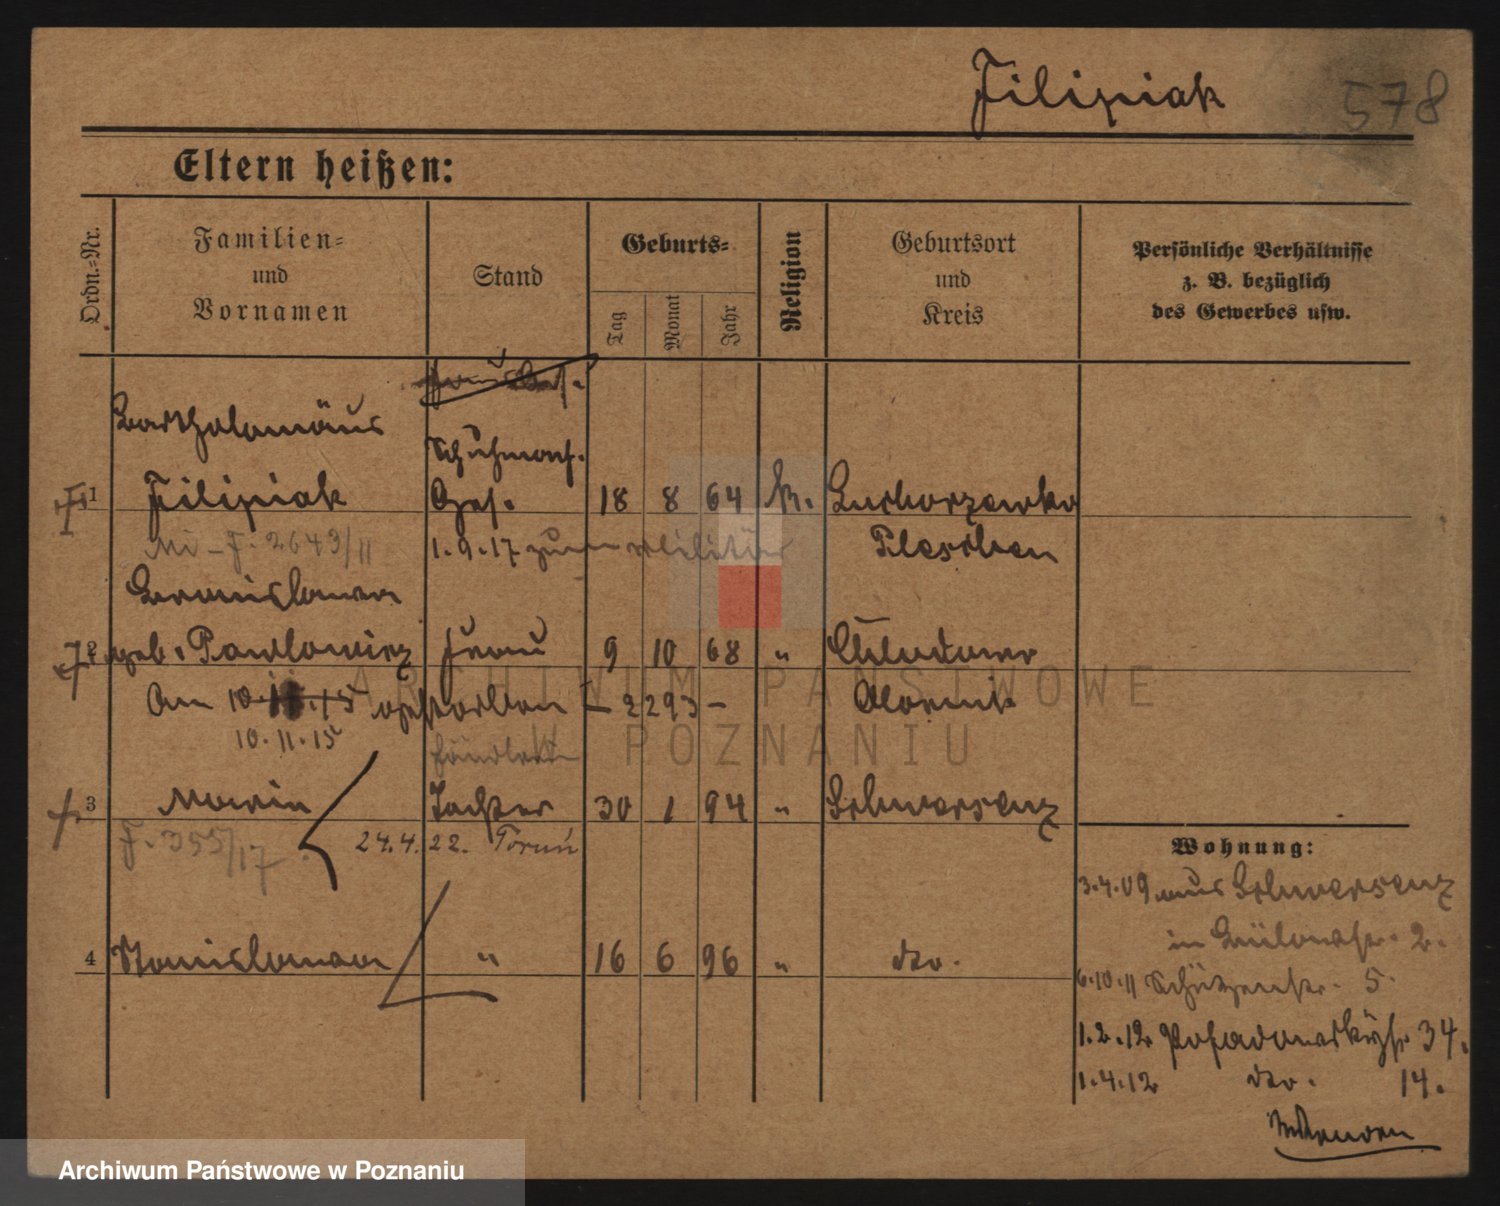 Filipiak 578
Eltern heißen:
Ordn.-Nr.
Familien-
und
Vornamen
Stand
Geburts-
Tag
Monat
Jahr
Religion
Geburtsort
und
Kreis
Persönliche Verhältnisse
z. B. bezüglich
des Gewerbes usw.
Bartholomäus
Schuhmach.
1 Filipiak Ges. 18 8 64 k.
Pleschen
F. 2643/11 1.9.17 zum Militär
Bronislawa
2 geb. Pawlowicz Frau 9 10 68 "
am 10. 15 gestorben - 2293 -
10.11.15
3 Maria Tochter 30 1 94 " Schwersenz
F. 355/17 24.4.22. Toruń
4 Stanislawa " 16 6 96 " dto.
Wohnung:
3.4.09 aus Schwersenz
in Bülowstr. 2.
6.10.11 Schützenstr. 5.
1.2.12 Posadowskystr 34.
1.4.12 dto. 14.
wenden
ARCHIWUM PAŃSTWOWE
W POZNANIU
Archiwum Państwowe w Poznaniu